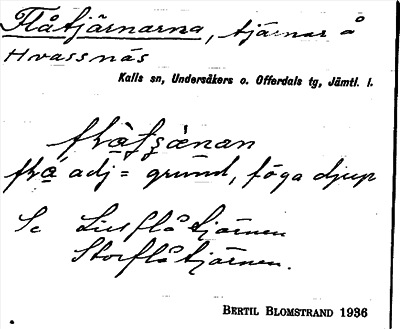 Flåtjärnarna, tjärnar å
Hvassnäs
Kalls sn, Undersåkers o. Offerdals tg, Jämtl. l.
adj = grund, föga djup
Se Lillflåtjärnen
Storflåtjärnen.
BERTIL BLOMSTRAND 1936